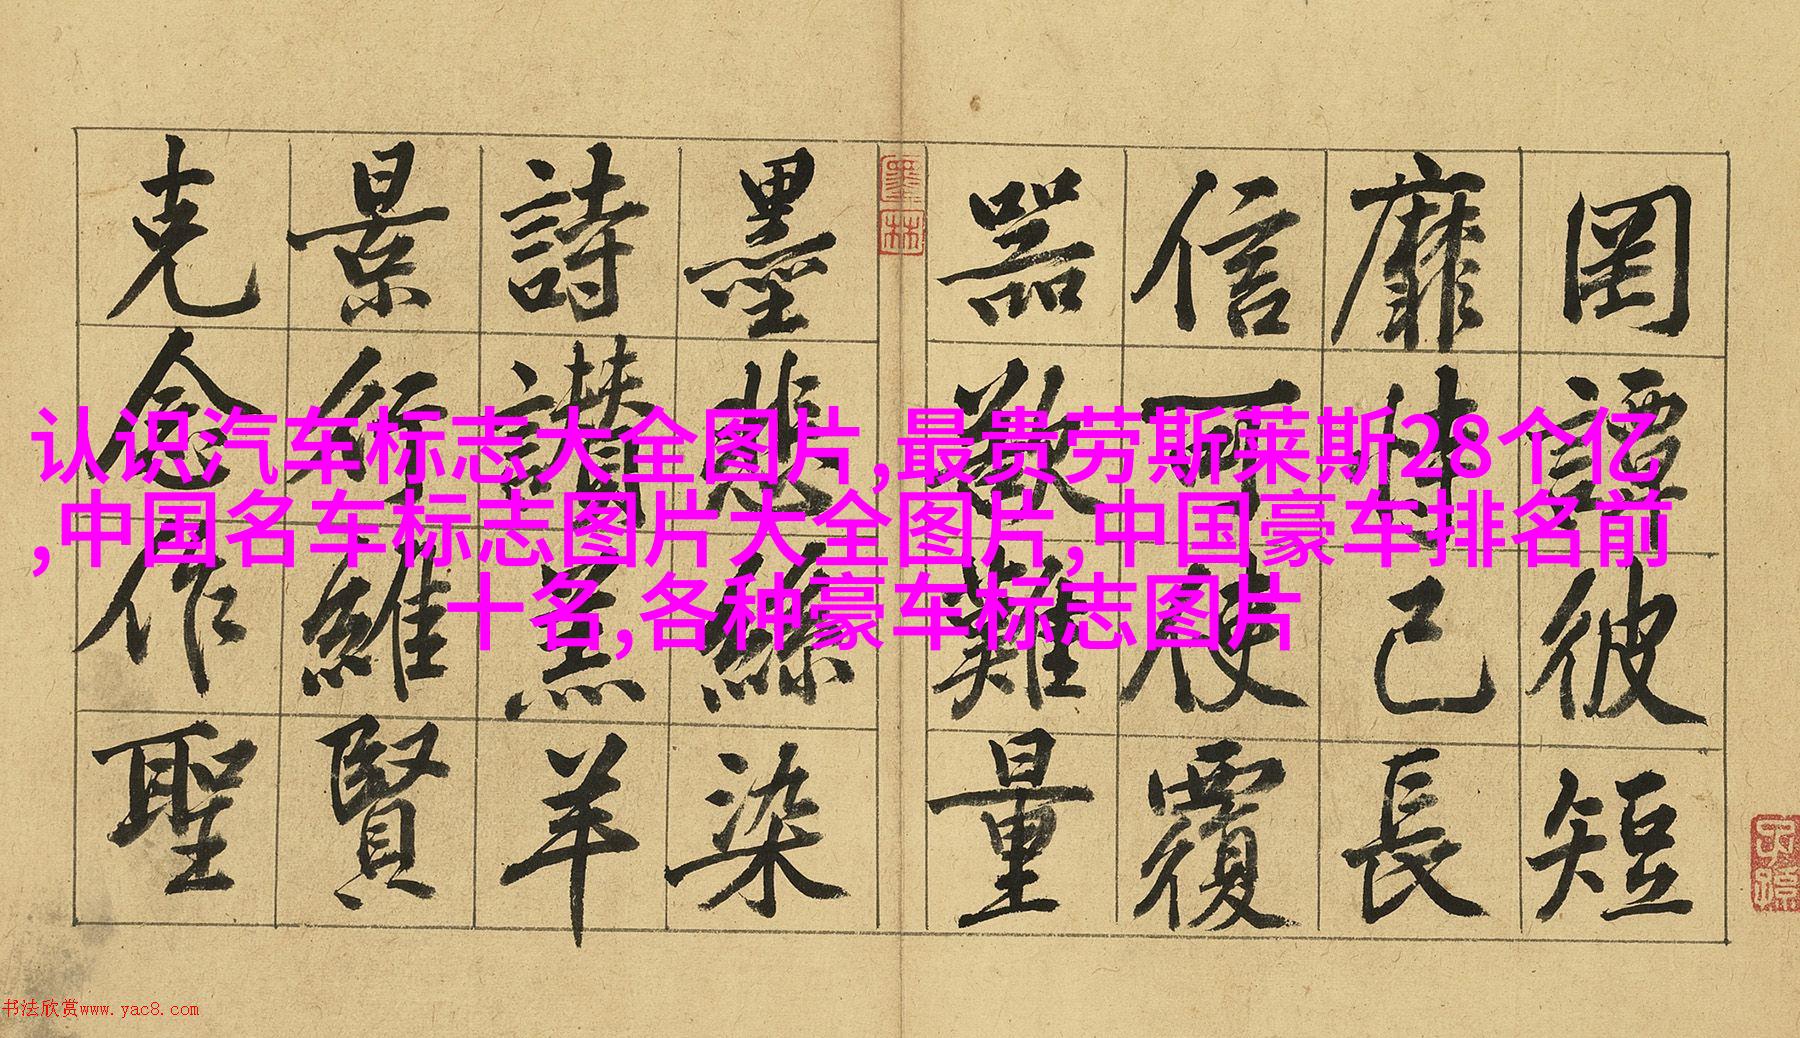 罔談彼短
靡恃己長
信可使覆
器欲難量
墨悲絲染
詩讚羔羊
景行維賢
克念作聖
墨林
认识汽车标志大全图片,最贵劳斯莱斯28个亿
,中国名车标志图片大全图片,中国豪车排名前
十名,各种豪车标志图片
书法欣赏www.yac8.com